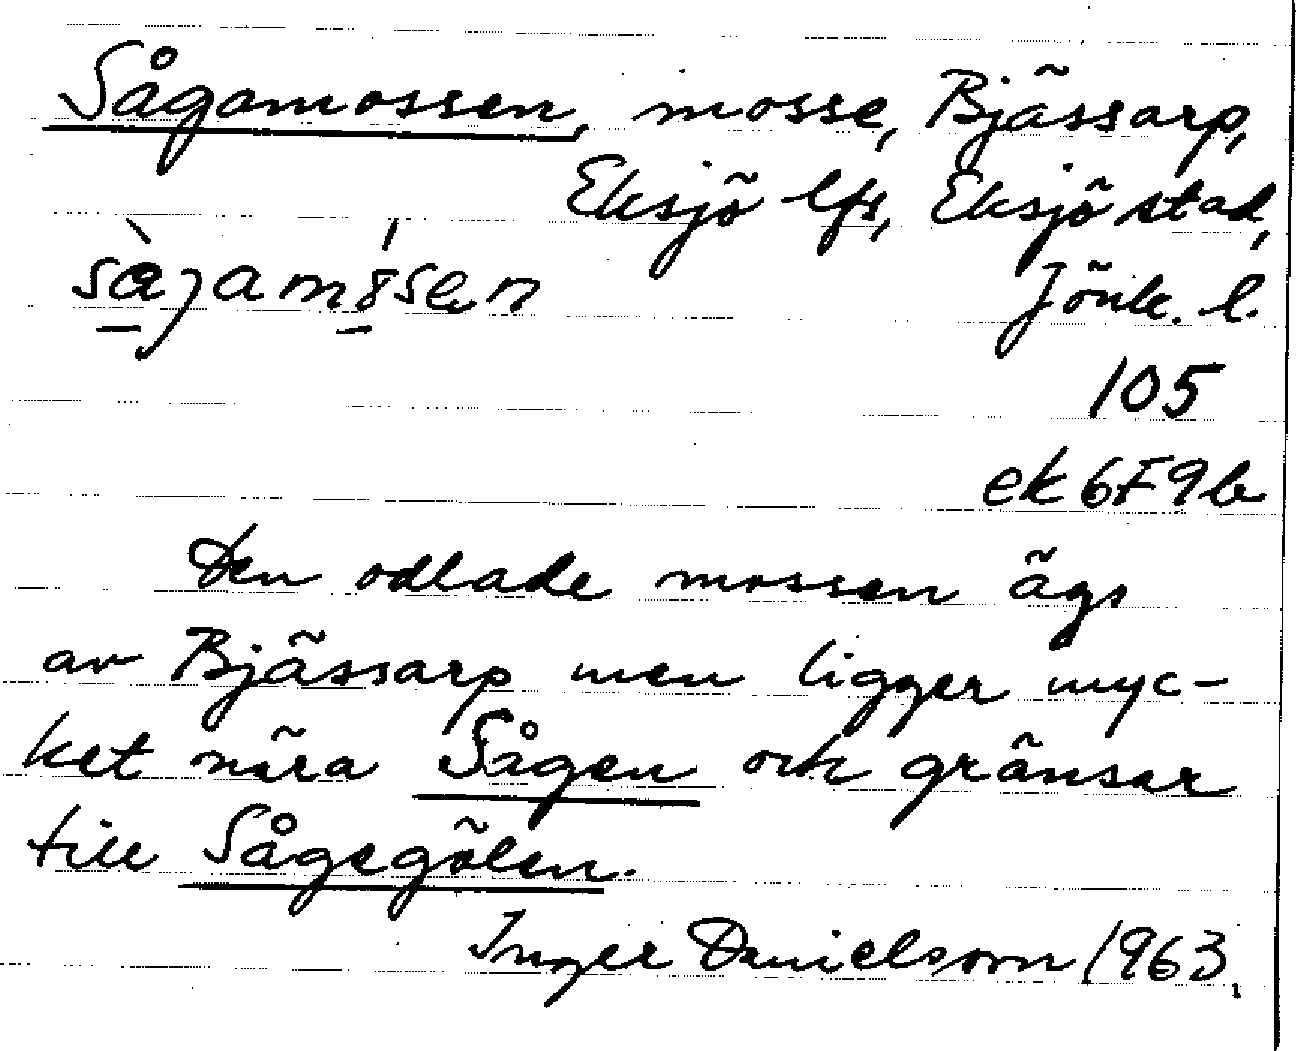 Sågamossen, mosse, Bjässarp,
Eksjö lfs, Eksjö stad,
Jönk. l.
105
ek 6F9b
Den odlade mossen ägs
av Bjässarp men ligger myc-
ket nära Sågen och gränsar
till Sågegölen.
Inger Danielsson 1963